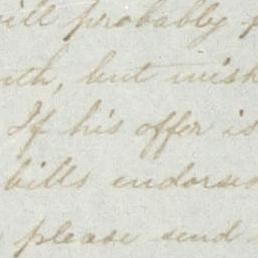 will probably
but wish
If his offer is
bills endorsed
please send